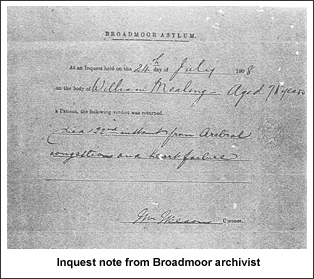 BROADMOOR ASYLUM.
At an Inquest held on the 24th day of July 1908
on the body of William Mealing Aged 78 years
a Patient, the following verdict was returned.
died 22nd instant from Cerebral
congestion and heart failure
Coroner.
Inquest note from Broadmoor archivist